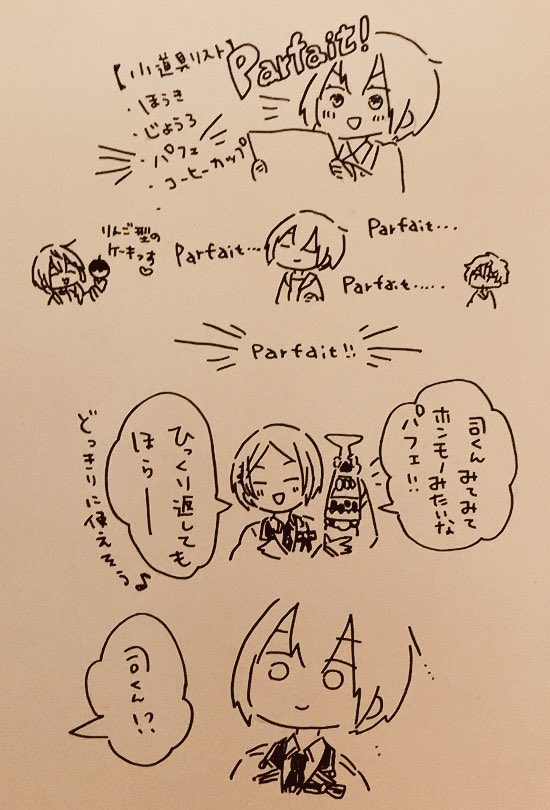 Parfait!
【小道具リスト】
・ほうき
・じょうろ
・パフェ
・コーヒーカップ
りんご型の
ケーキっす♡
Parfait...
Parfait...
Parfait.....
Parfait!!
司くんみてみて
ホンモノみたいな
パフェ!!
ひっくり返しても
ほらー
どっきりに使えそう♪
司くん!?